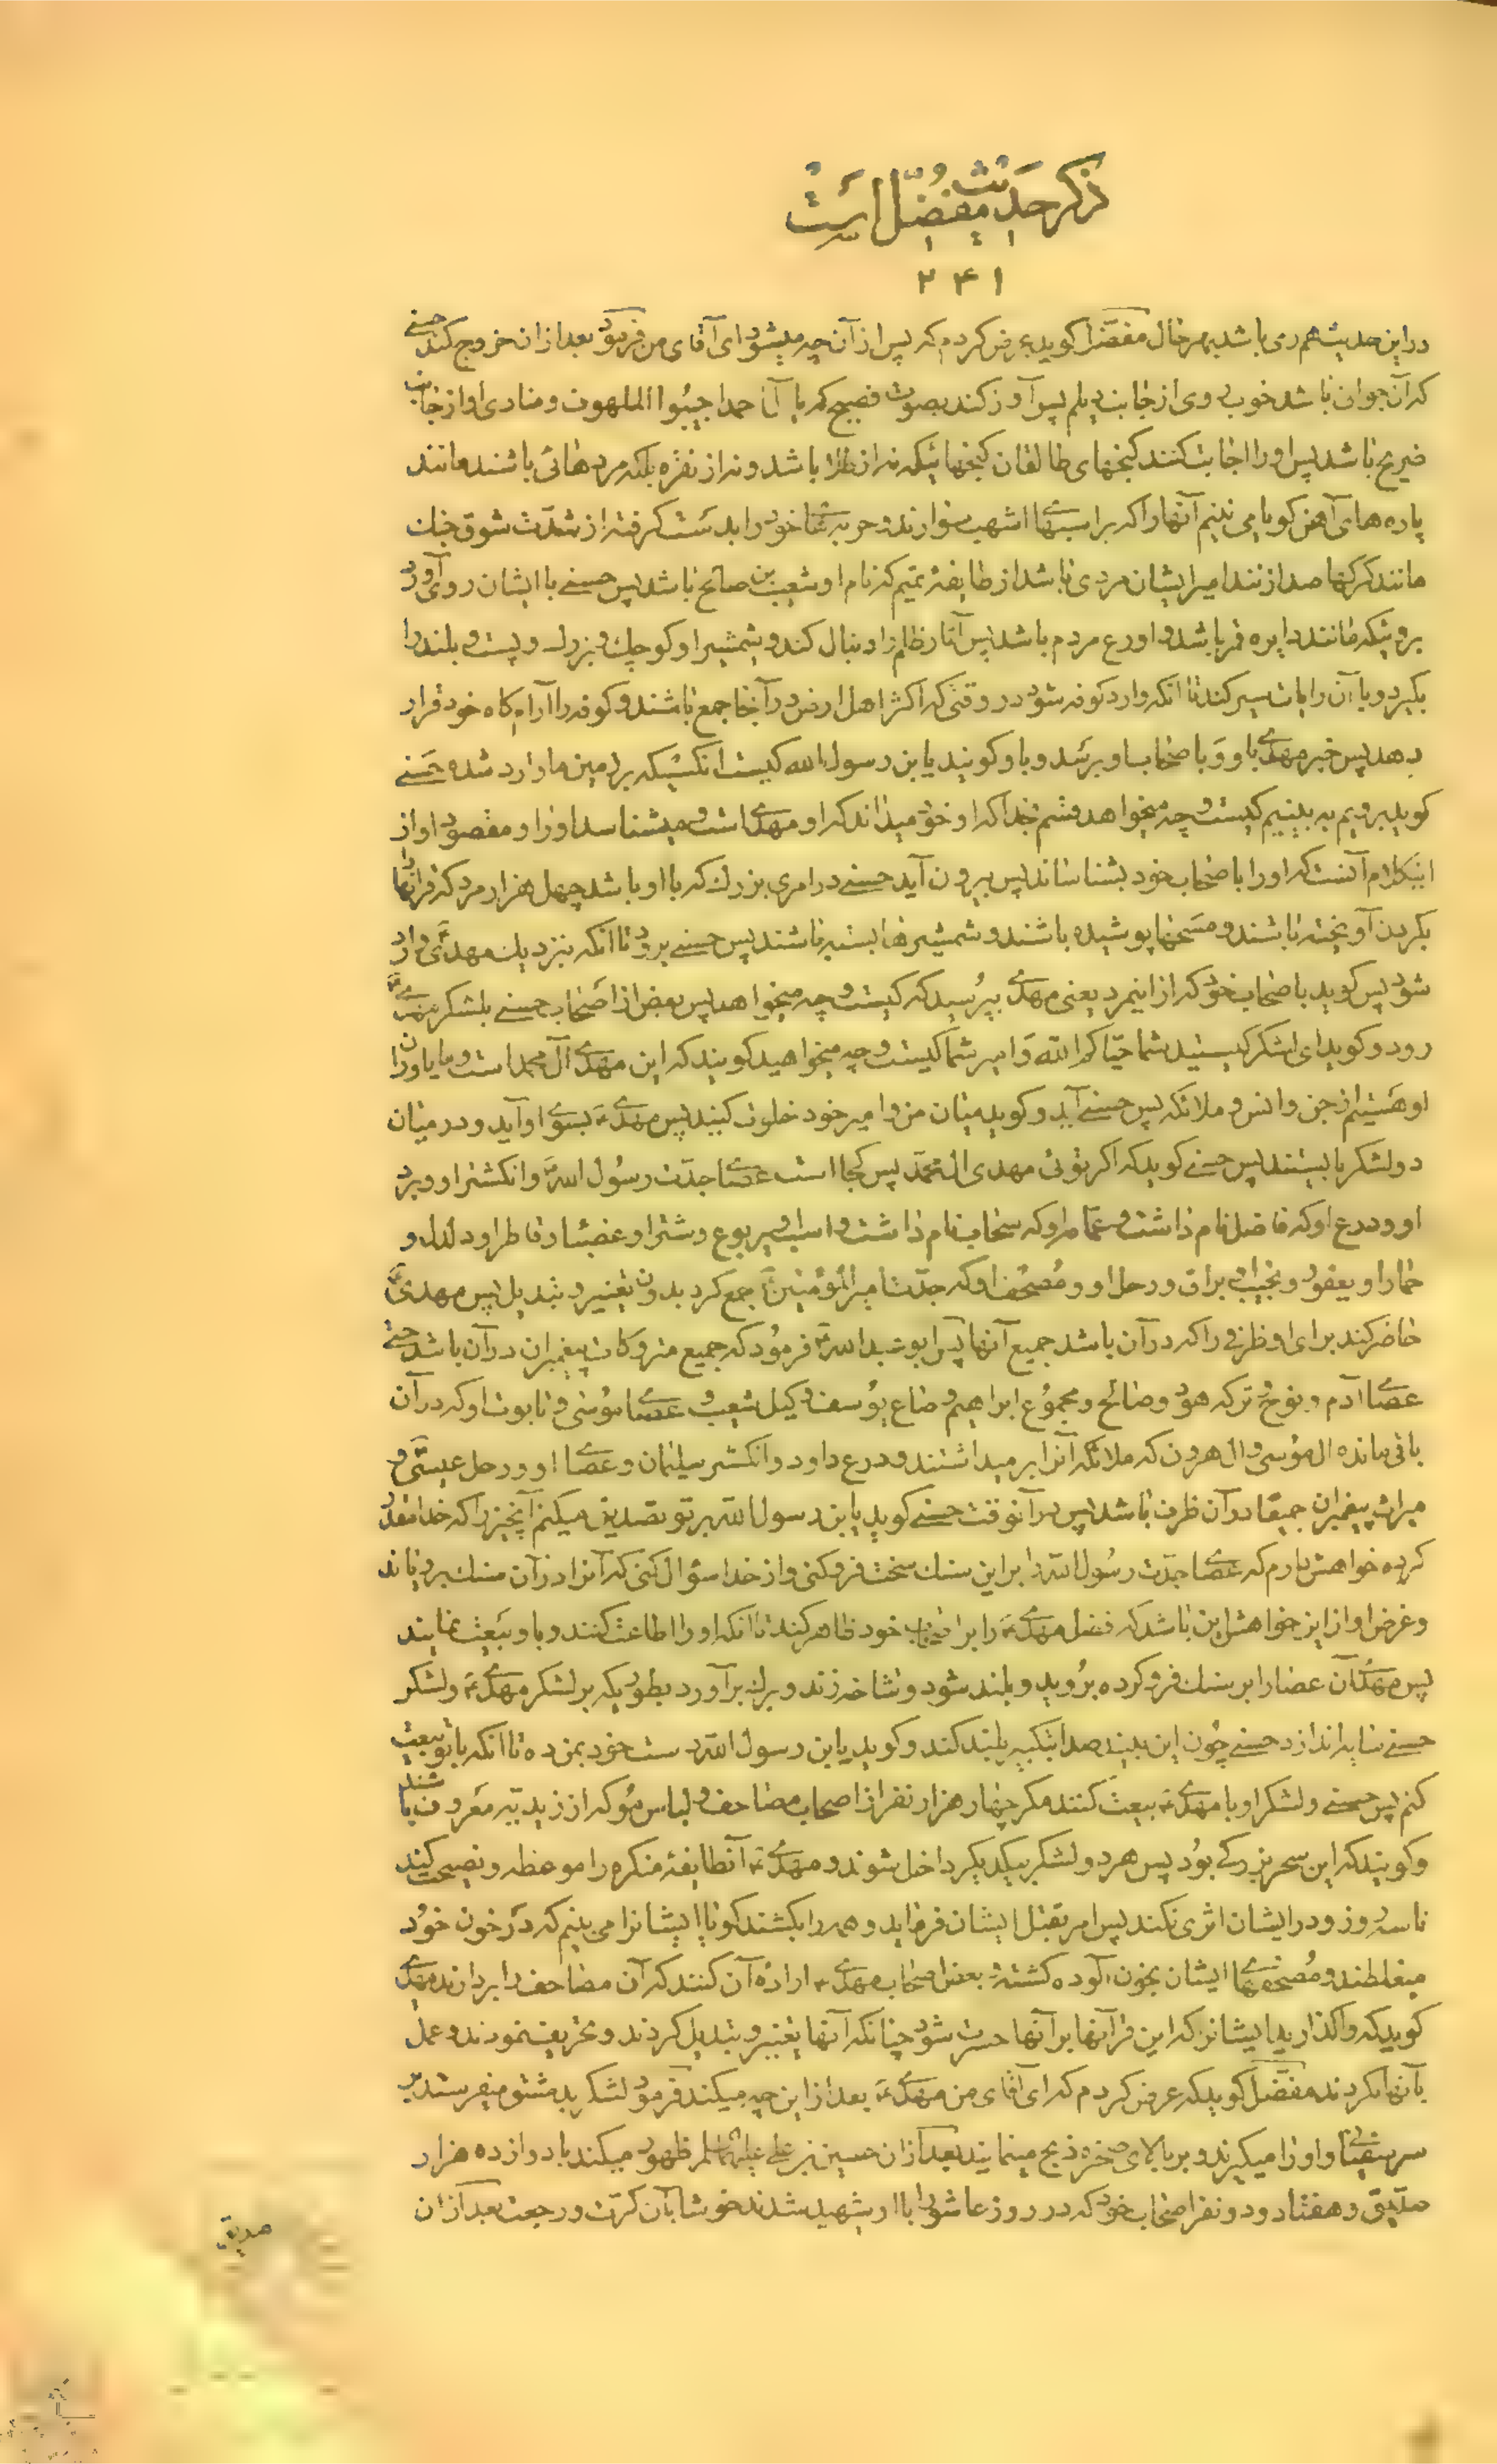 ذکر حدیث مفضّل است
۲۴۱
در این حدیث هم می باشد بهر حال مفضّل کوید عرض کردم که پس از آن چه میشود ای آقای من فرمود بعد از ان خروج کند حسنے
که آن جوان باشد خوب روی از جانب دیلم پس آواز کند بصوت فصیح که یا آل احمد اجیبوا الملهوف و منادی او از جانب
ضریح باشد پس او را اجابت کنند کنجهای طالقان کنجهائیکه نه از طلا باشد و نه از نقره بلکه مردهائی باشند مانند
پاره های آهن کویا می بینم آنها را که بر اسبهای اشهب سوارند و حربه های خود را بدست کرفته از شدّت شوق جنک
مانند کرکها صدا زنند امیر ایشان مردی باشد از طایفهٔ تمیم که نام او شعیب بن صالح باشد پس حسنے با ایشان روی آورد
بروئیکه مانند دایره قمر باشد و اورع مردم باشد پس آثار ظلم را دنبال کند و شمشیر او کوچک و بزرك و پست و بلند را
بکیرد و با آن رایات سیر کند تا انکه وارد کوفه شود در وقتی که اکثر اهل ارض در آنجا جمع باشند و کوفه را آرام کاه خود قرار
دهد پس خبر مهدے باو و باصحاب او برسد و باو کویند یابن رسول الله کیست انکسیکه بزمین ما وارد شده حسنے
کوید برویم به بینیم کیست و چه میخواهد قسم بخدا که او خود میداند که او مهدے است و میشناسد او را و مقصود او از
اینکلام آنست که او را باصحاب خود بشناساند پس بیرون آید حسنے در امری بزرك که با او باشد چهل هزار مرد که قرانها را
بکردن آویخته باشند و مسحها پوشیده باشند و شمشیرها بسته باشند پس حسنے برود تا انکه بنزدیك مهدی وارد
شود پس کوید باصحاب خود که از اینمرد یعنی مهدے بپرسید که کیست و چه میخواهد پس بعض از اصحاب حسنے بلشکر مهدے
رود و کوید ای لشکر کیستید شما حیّاکم الله و امیر شما کیست و چه میخواهید کویند که این مهدے آل محمد است و ما یاوران
او هستیم از جن و انس و ملائکه پس حسنے آید و کوید میان من و امیر خود خلوت کنید پس مهدے بسوے او آید و در میان
دو لشکر بایستند پس حسنے کوید که اکر توئی مهدی ال محمّد پس کجا است عصاے جدّت رسول الله و انکشتر او و برد
او و درع او که فاضل نام داشت و عمامه او که سحاب نام داشت و اسب او یربوع و شتر او عضبا و قاطر او دلدل و
حمار او یعفور و نجیب او براق و رحل او و مُصحف او که جدّت امیر المؤمنین جمع کرد بدون تغییر و تبدیل پس مهدی
حاضر کند برای او ظرفی را که در آن باشد جمیع آنها پس ابو عبد الله فرمود که جمیع متروکات پیغمبران در آن باشد حتی
عصاے آدم و نوح و ترکه هود و صالح و مجموع ابراهیم و صاع یوسف و کیل شعیب و عصاے موسی و تابوت او که در آن
باقی مانده ال موسی و ال هرون که ملائکه آنرا بر میداشتند و درع داود و انکشتر سلیمان و عصاے او و رحل عیسی و
میراث پیغمبران جمیعًا در آن ظرف باشد پس در آنوقت حسنے کوید یابن رسول الله بر تو تصدیق میکنم آنچیز را که خدا مقدر
کرده خواهش دارم که عصاے جدّت رسول الله را بر این سنك سخت فرو کنی و از خدا سؤال کنی که آنرا در آن سنك برویاند
و غرض او از این خواهش این باشد که فضل مهدے را بر اصحاب خود ظاهر کند تا انکه او را اطاعت کنند و باو بیعت نمایند
پس مهدی آن عصا را بر سنك فرو کرده بروید و بلند شود و شاخه زند و برك بر آورد بطوریکه بر لشکر مهدے و لشکر
حسنے سایه اندازد حسنے چون این بیند صدا بتکبیر بلند کند و کوید یابن رسول الله دست خود بمن ده تا انکه با تو بیعت
کنم پس حسنے و لشکر او با مهدے بیعت کنند مکر چهار هزار نفر از اصحاب مصاحف و لباس مو که از زیدیّه معروف باشند
و کویند که این سحر بزرکے بود پس هر دو لشکر بیکدیکر داخل شوند و مهدے آنطایفهٔ منکره را موعظه و نصیحت کند
تا سه روز و در ایشان اثری نکند پس امر بقتل ایشان فرماید و همه را بکشند کویا ایشانرا می بینم که در خون خود
میغلطند و مُصحفهاے ایشان بخون آلوده کشته و بعض اصحاب مهدے اراده آن کنند که آن مصاحف را بردارند مهدے
کوید که واکذارید ایشانرا که این قرآنها بر آنها حسرت شود چنانکه آنها تغییر و تبدیل کردند و تحریف نمودند و عمل
بآنها نکردند مفضّل کوید که عرض کردم که ای آقای من مهدے بعد از این چه میکند فرمود لشکر بدمشق میفرستد بر
سر سفیانی و او را میکیرند و بر بالای صخره ذبح مینمایند بعد از ان حسین بن علی علیهما السلام ظهور میکند با دوازده هزار
صدیق و هفتاد و دو نفر اصحاب خود که در روز عاشورا با او شهید شدند خوشا بآن کرّت و رجعت بعد از ان
صدیق